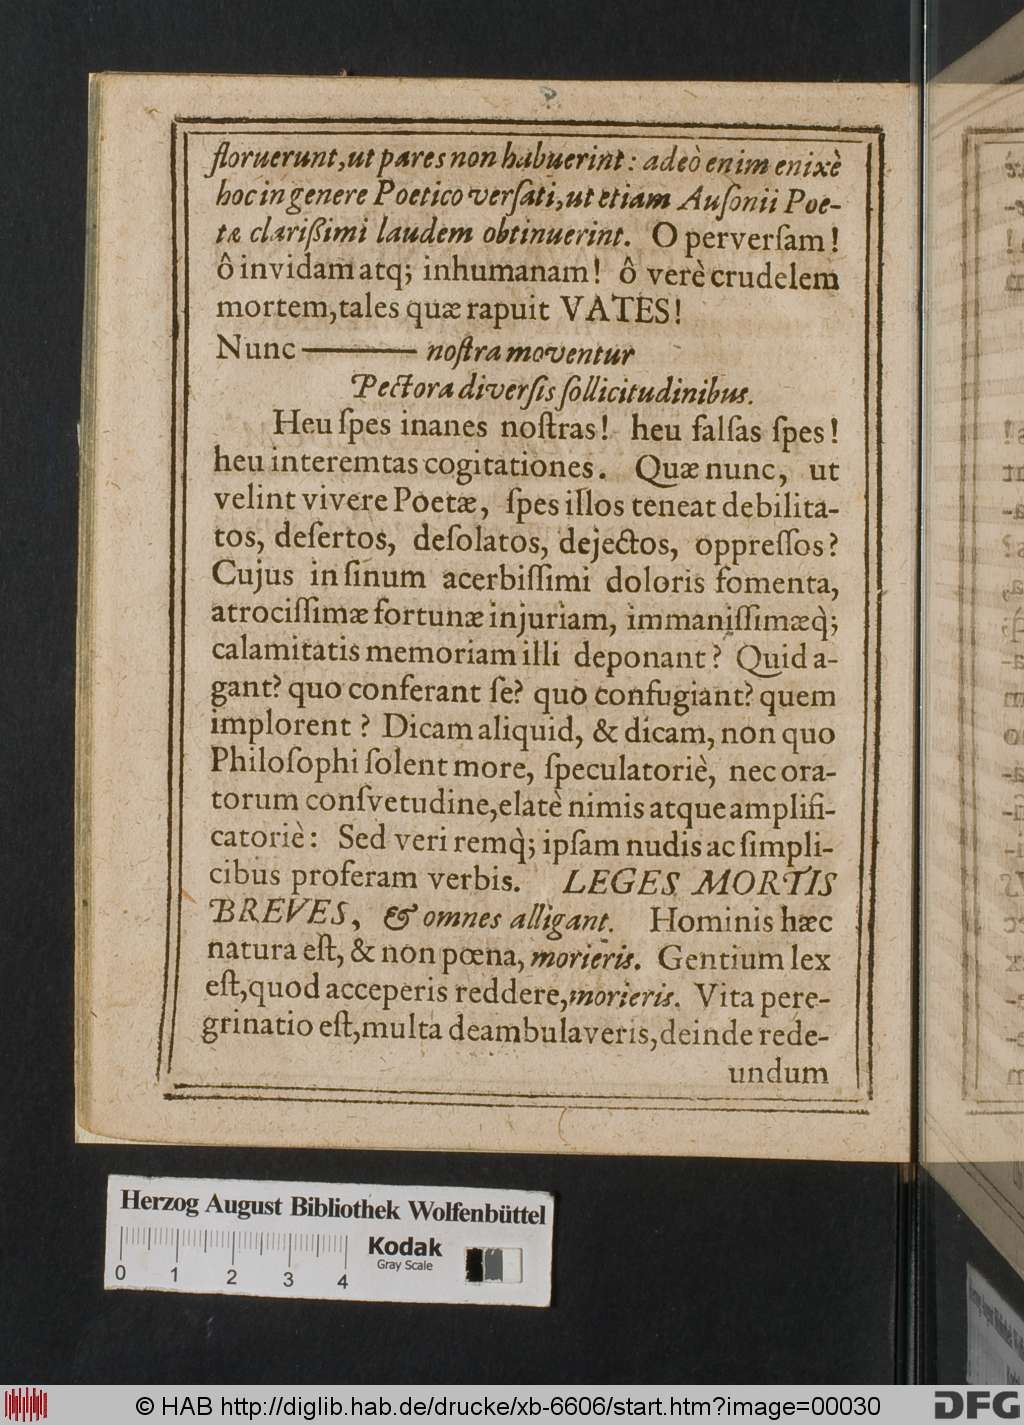 floruerunt, ut pares non habuerint: adeò enim enixè
hoc in genere Poetico verſati, ut etiam Auſonii Poe-
tæ clarißimi laudem obtinuerint. O perverſam!
ô invidam atq; inhumanam! ô verè crudelem
mortem, tales quæ rapuit VATES!
Nunc ——— noſtra moventur
Pectora diverſis ſollicitudinibus.
Heu ſpes inanes noſtras! heu falſas ſpes!
heu interemtas cogitationes. Quæ nunc, ut
velint vivere Poëtæ, ſpes illos teneat debilita-
tos, deſertos, deſolatos, dejectos, oppreſſos?
Cujus in ſinum acerbiſſimi doloris fomenta,
atrociſſimæ fortunæ injuriam, immaniſſimæq́;
calamitatis memoriam illi deponant? Quid a-
gant? quo conferant ſe? quo confugiant? quem
implorent? Dicam aliquid, & dicam, non quo
Philoſophi ſolent more, ſpeculatoriè, nec ora-
torum conſvetudine, elatè nimis atque amplifi-
catoriè: Sed veri remq́; ipſam nudis ac ſimpli-
cibus proferam verbis. LEGES MORTIS
BREVES, & omnes alligant. Hominis hæc
natura eſt, & non pœna, morieris. Gentium lex
eſt, quod acceperis reddere, morieris. Vita pere-
grinatio eſt, multa deambulaveris, deinde rede-
undum
Herzog August Bibliothek Wolfenbüttel
Kodak
Gray Scale
0 1 2 3 4
© HAB http://diglib.hab.de/drucke/xb-6606/start.htm?image=00030
DFG